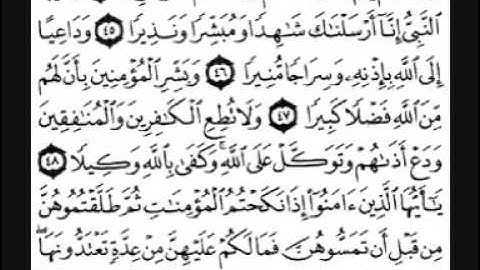 ٱلنَّبِىُّ إِنَّآ أَرْسَلْنَٰكَ شَٰهِدًا وَمُبَشِّرًا وَنَذِيرًا ٤٥ وَدَاعِيًا
إِلَى ٱللَّهِ بِإِذْنِهِۦ وَسِرَاجًا مُّنِيرًا ٤٦ وَبَشِّرِ ٱلْمُؤْمِنِينَ بِأَنَّ لَهُم
مِّنَ ٱللَّهِ فَضْلًا كَبِيرًا ٤٧ وَلَا تُطِعِ ٱلْكَٰفِرِينَ وَٱلْمُنَٰفِقِينَ
وَدَعْ أَذَىٰهُمْ وَتَوَكَّلْ عَلَى ٱللَّهِ ۚ وَكَفَىٰ بِٱللَّهِ وَكِيلًا ٤٨
يَٰٓأَيُّهَا ٱلَّذِينَ ءَامَنُوٓا۟ إِذَا نَكَحْتُمُ ٱلْمُؤْمِنَٰتِ ثُمَّ طَلَّقْتُمُوهُنَّ
مِن قَبْلِ أَن تَمَسُّوهُنَّ فَمَا لَكُمْ عَلَيْهِنَّ مِنْ عِدَّةٍ تَعْتَدُّونَهَا ۖ